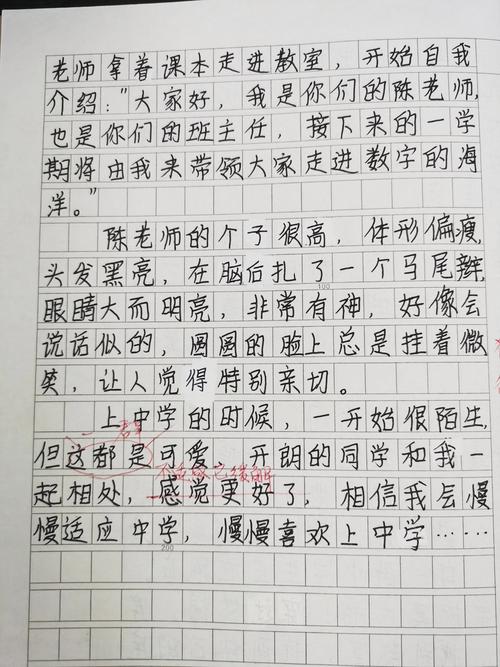 老师拿着课本走进教室，开始自我
介绍："大家好，我是你们的陈老师，
也是你们的班主任，接下来的一学
期将由我来带领大家走进数字的海
洋。"
陈老师的个子很高，体形偏瘦，
头发黑亮，在脑后扎了一个马尾辫，
100
眼睛大而明亮，非常有神，好像会
说话似的，圆圆的脸上总是挂着微
笑，让人觉得特别亲切。
上中学的时候，一开始很陌生，
但这都是可爱、开朗的同学和我一
起相处，感觉更好了，相信我会慢
慢适应中学，慢慢喜欢上中学……
200